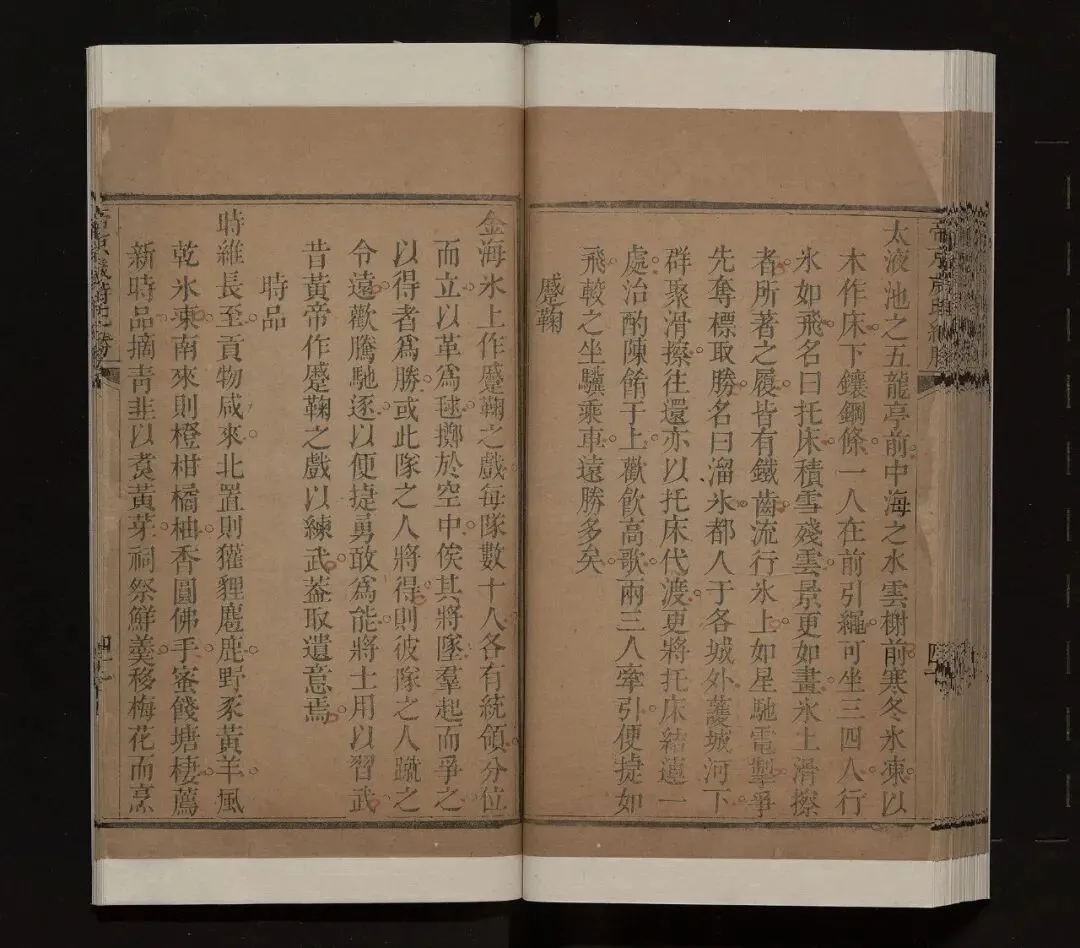 太液池之五龍亭前中海之水雲榭前寒冬氷凍以
木作床下鑲鋼條一人在前引繩可坐三四人行
氷如飛名曰托床積雪殘雲景更如畫氷上滑擦
者所著之履皆有鐵齒流行氷上如星馳電掣爭
先奪標取勝名曰溜氷都人于各城外䕶城河下
群聚滑擦往還亦以托床代渡更將托床結連一
處治酌陳餚于上歡飲高歌兩三人牽引便捷如
飛較之坐驥乘車遠勝多矣
蹙鞠
金海氷上作蹙鞠之戲每隊數十人各有統領分位
而立以革爲毬擲於空中俟其將墜羣起而爭之
以得者爲勝或此隊之人將得則彼隊之人蹴之
令遠歡騰馳逐以便捷勇敢爲能將士用以習武
昔黃帝作蹙鞠之戲以練武葢取遺意焉
時品
時維長至貢物咸來北置則獾貍麅鹿野豕黃羊風
乾氷凍南來則橙柑橘柚香圓佛手蜜餞塘棲薦
新時品摘青韭以煑黃芽祠祭鮮羹移梅花而烹